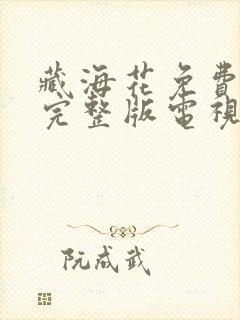 藏海花免費
完整版電視
阮成武